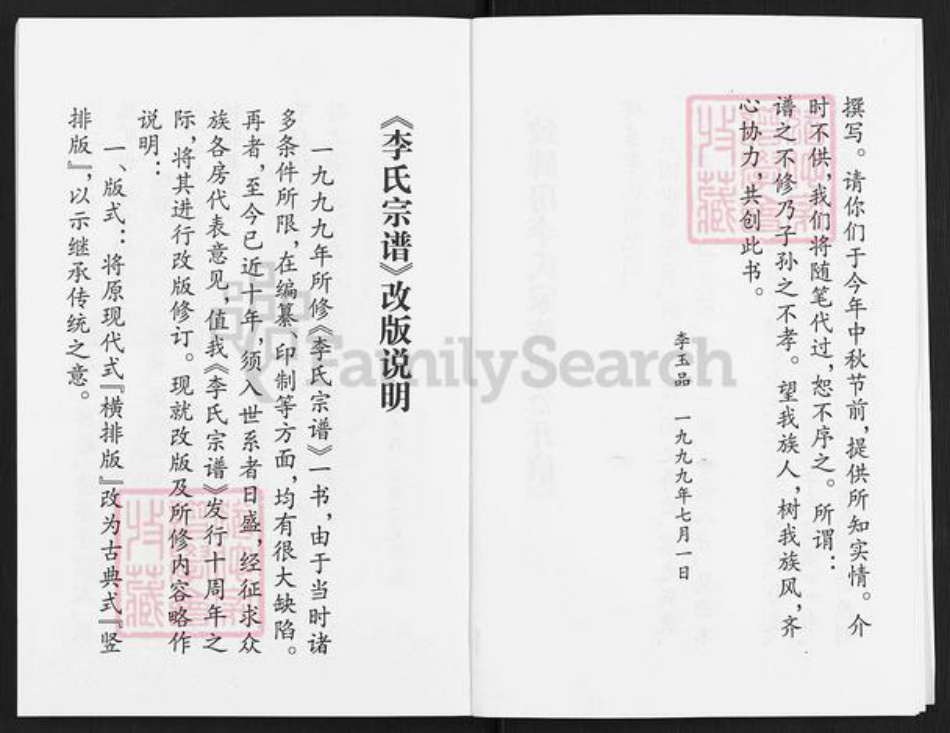 撰写。请你们于今年中秋节前，提供所知实情。介
时不供，我们将随笔代过，恕不序之。所谓：
谱之不修乃子孙之不孝。望我族人，树我族风，齐
心协力，共创此书。
李玉品 一九九九年七月一日
《李氏宗谱》改版说明
一九九九年所修《李氏宗谱》一书，由于当时诸
多条件所限，在编纂、印制等方面，均有很大缺陷。
再者，至今已近十年，须入世系者日盛，经征求众
族各房代表意见，值我《李氏宗谱》发行十周年之
际，将其进行改版修订。现就改版及所修内容略作
说明：
一、版式：将原现代式『横排版』改为古典式『竖
排版』，以示继承传统之意。
FamilySearch